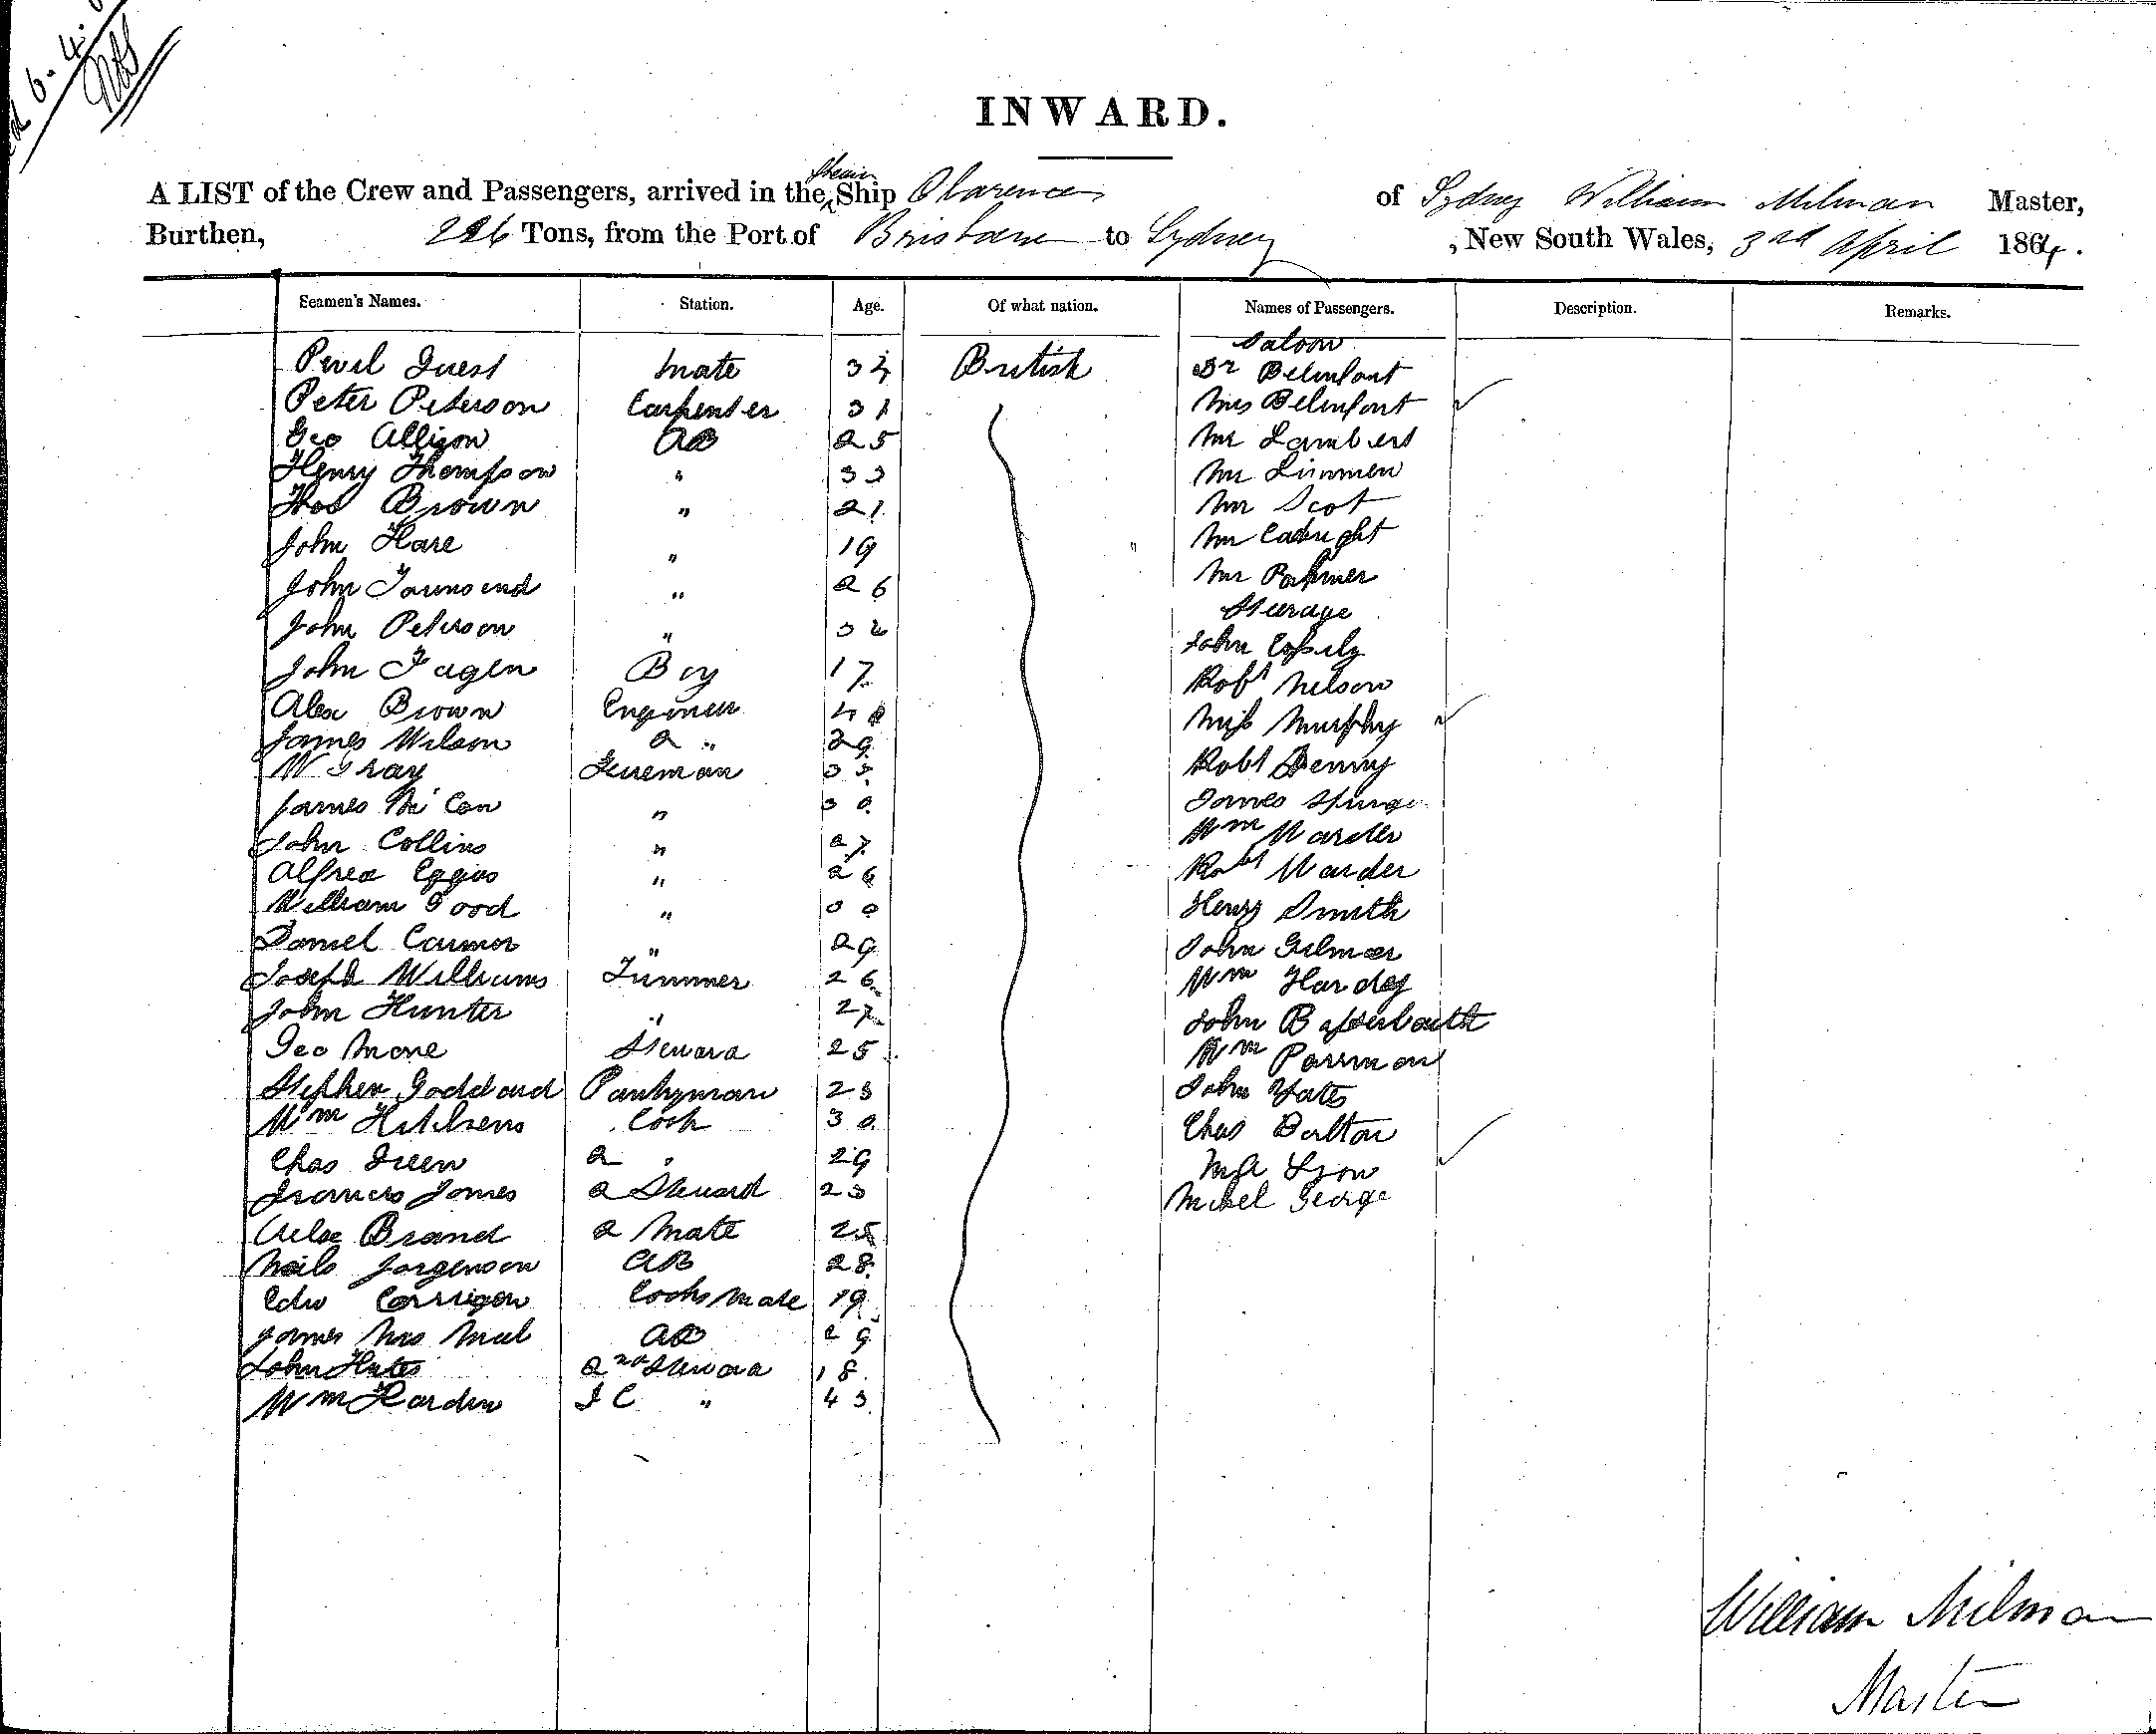 6. 4.
INWARD.
A LIST of the Crew and Passengers, arrived in the Steam Ship Clarence of Sydney William Milman Master,
Burthen, 226 Tons, from the Port of Brisbane to Sydney, New South Wales, 3rd April 1864.
Seamen's Names. Station. Age. Of what nation. Names of Passengers. Description. Remarks.
Saloon
Guest Mate 34 British Dr Belinfont
Peter Peterson Carpenter 31 Mrs Belinfont
Geo Allison AB 25 Mr Lambert
Henry Thompson " 33 Mr
Thos Brown " 21 Mr Scot
John Hare " 19 Mr
John Townsend " 26 Mr Palmer
Steerage
John Peterson " 32 John
John Fagen Boy 17 Robt Nelson
Alex Brown Engineer 40 Miss Murphy
James Wilson 2 " 29 Robt Denny
W Gray Fireman 35 James
James Mc Can " 30 Wm Warder
John Collins " 27 Robt Warder
Alfred Eggins " 26 Henry Smith
William Good " 30 John Gilmer
Daniel Connor " 29 Wm Hardy
Joseph Williams Trimmer 26 John
John Hunter " 27 Wm
Geo More Steward 25 John Yates
Stephen Goddard Pantryman 23 Chas Dalton
Wm Cook 30 Lyon
Chas Green 2 " 29 George
Francis Jones 2 Steward 23
Alex Brand 2 Mate 25
Neils Jorgenson AB 28
Edw Corrigan Cooks Mate 19
James AB 29
John 2nd Steward 18
Wm Harden " 43
William Milman
Master